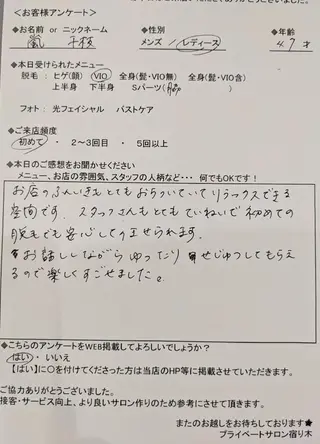 ＜お客様アンケート＞
◆お名前 or ニックネーム ◆性別 ◆年齢
嵐 千枝 メンズ / レディース 47 才
◆本日受けられたメニュー
脱毛：ヒゲ(顔) VIO 全身(髭・VIO無) 全身(髭・VIO含)
上半身 下半身 Sパーツ( )
フォト：光フェイシャル バストケア
◆ご来店頻度
初めて ・ 2～3回目 ・ 5回以上
◆本日のご感想をお聞かせください
メニュー、お店の雰囲気、スタッフの人柄など・・・ 何でもOKです！
お店のふんいきもとてもおちついていてリラックスできる
空間です。スタッフさんもとてもていねいで初めての
脱毛でも安心してのせられます。
お話ししながらゆったり せじゅつしてもらえ
るので楽しくすごせました。
◆こちらのアンケートをWEB掲載してよろしいでしょうか？
はい ・ いいえ
【はい】に〇を付けてくださった方は当店のHP等に掲載させていただきます。
ご協力ありがとうございました。
接客・サービス向上、より良いサロン作りのため参考にさせて頂きます。
またのお越しをお待ちしております★
プライベートサロン宿り木